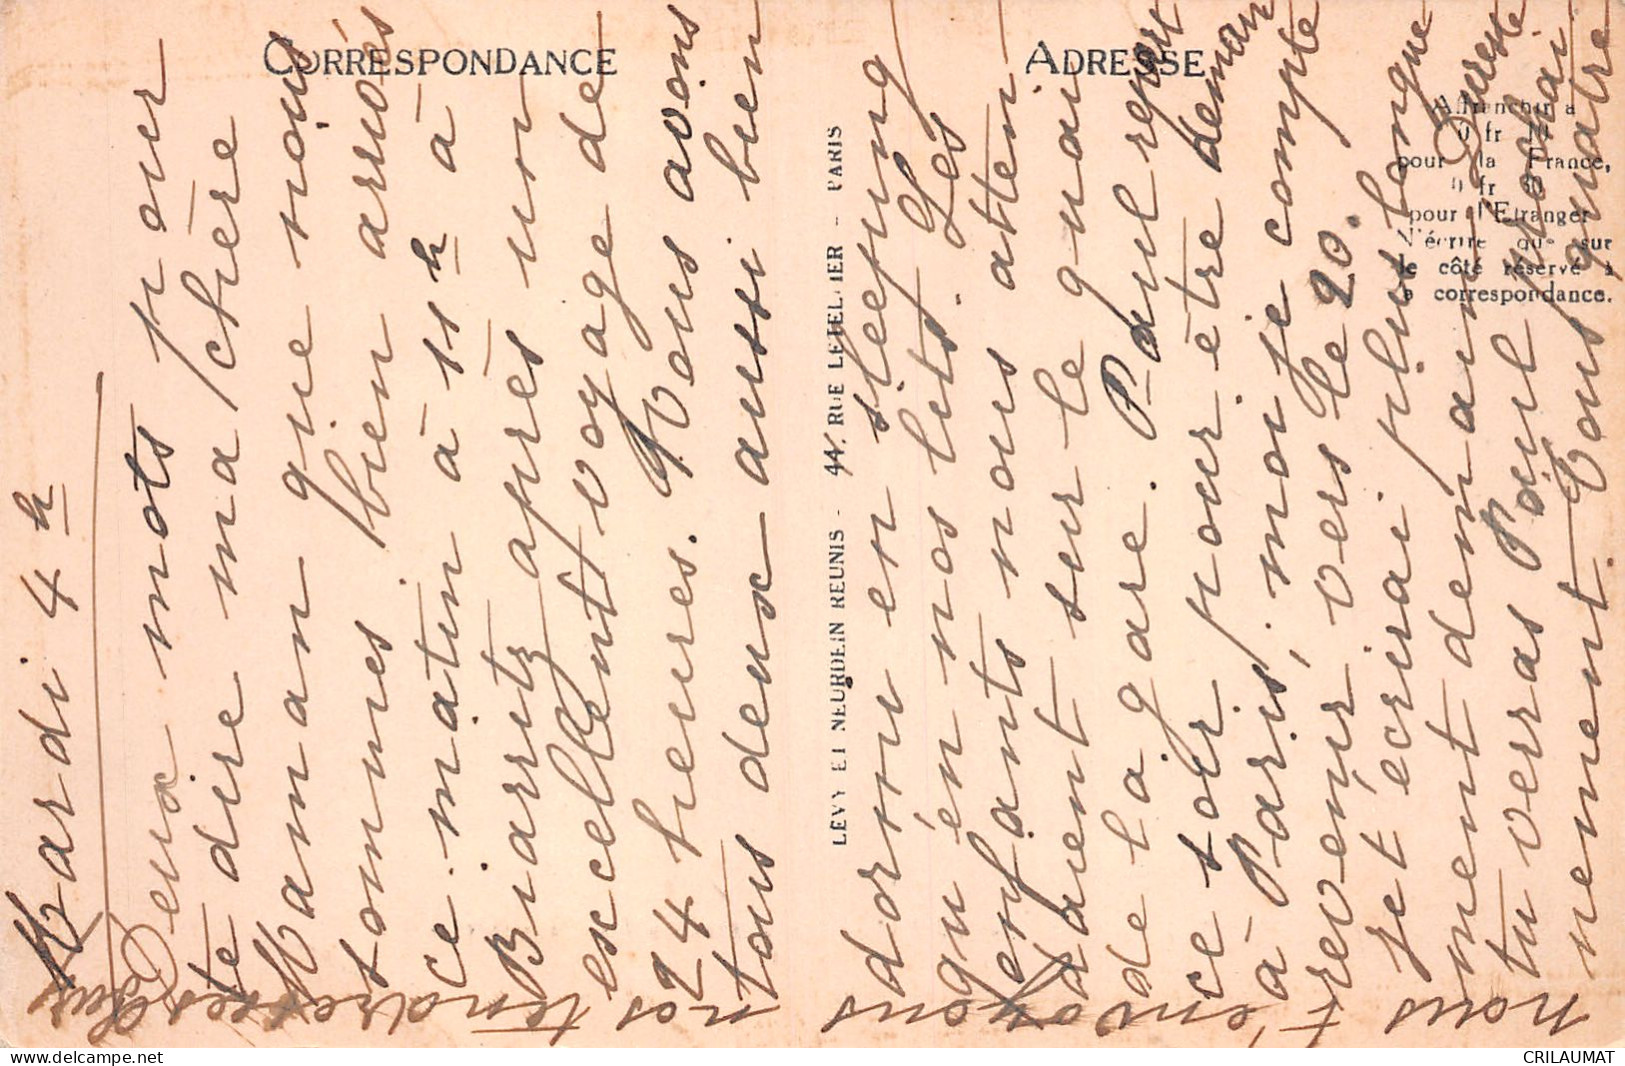 CORRESPONDANCE
ADRESSE
Affranchir à
0 fr
pour la France,
0 fr
pour l'Etranger
N'écrire que sur
le côté réservé à
la correspondance.
LEVY ET NEURDEIN REUNIS - 44, RUE LETELLIER - PARIS
Mardi 4 h
Deux mots pour
te dire ma chère
Maman que nous
sommes bien arrivés
ce matin à 11 h à
Biarritz après un
excellent voyage de
24 heures. Nous avons
tous deux aussi bien
dormi en sleeping
qu'en nos lits. Les
enfants nous atten
daient sur le quai
de la gare. Paul repart
ce soir pour être demain
à Paris, moi je compte
revenir vers le 20.
Je t'écrirai plus longue
ment demain. Du reste
tu verras Paul prochai
nement. Tous quatre
nous t'envoyons
nos tendresses
CRILAUMAT